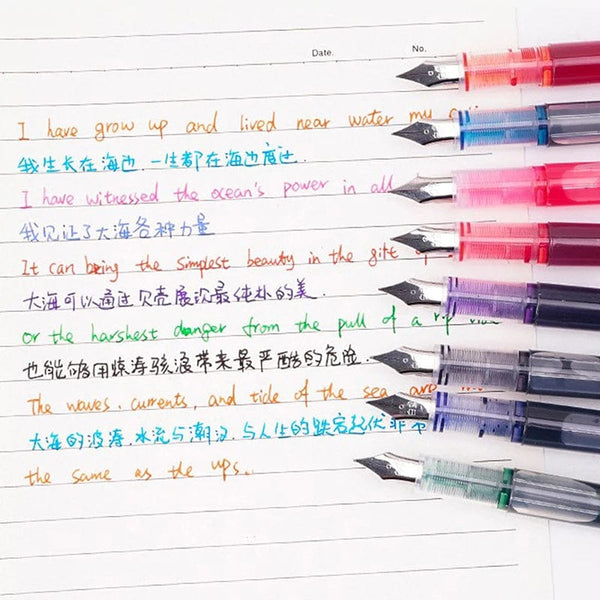 Date. No.
I have grow up and lived near water my
我生长在海边.一生都在海边度过.
I have witnessed the ocean's power in all
我见证了大海各种力量
It can bring the simplest beauty in the gift
大海可以通过贝壳展次最纯朴的美.
or the harshest danger from the pull of a rip
也能够用惊涛骇浪带来最严酷的危险.
The waves. currents, and tide of the sea are
大海的波涛.水流与潮汐.与人生的跌宕起伏非常
the same as the ups..